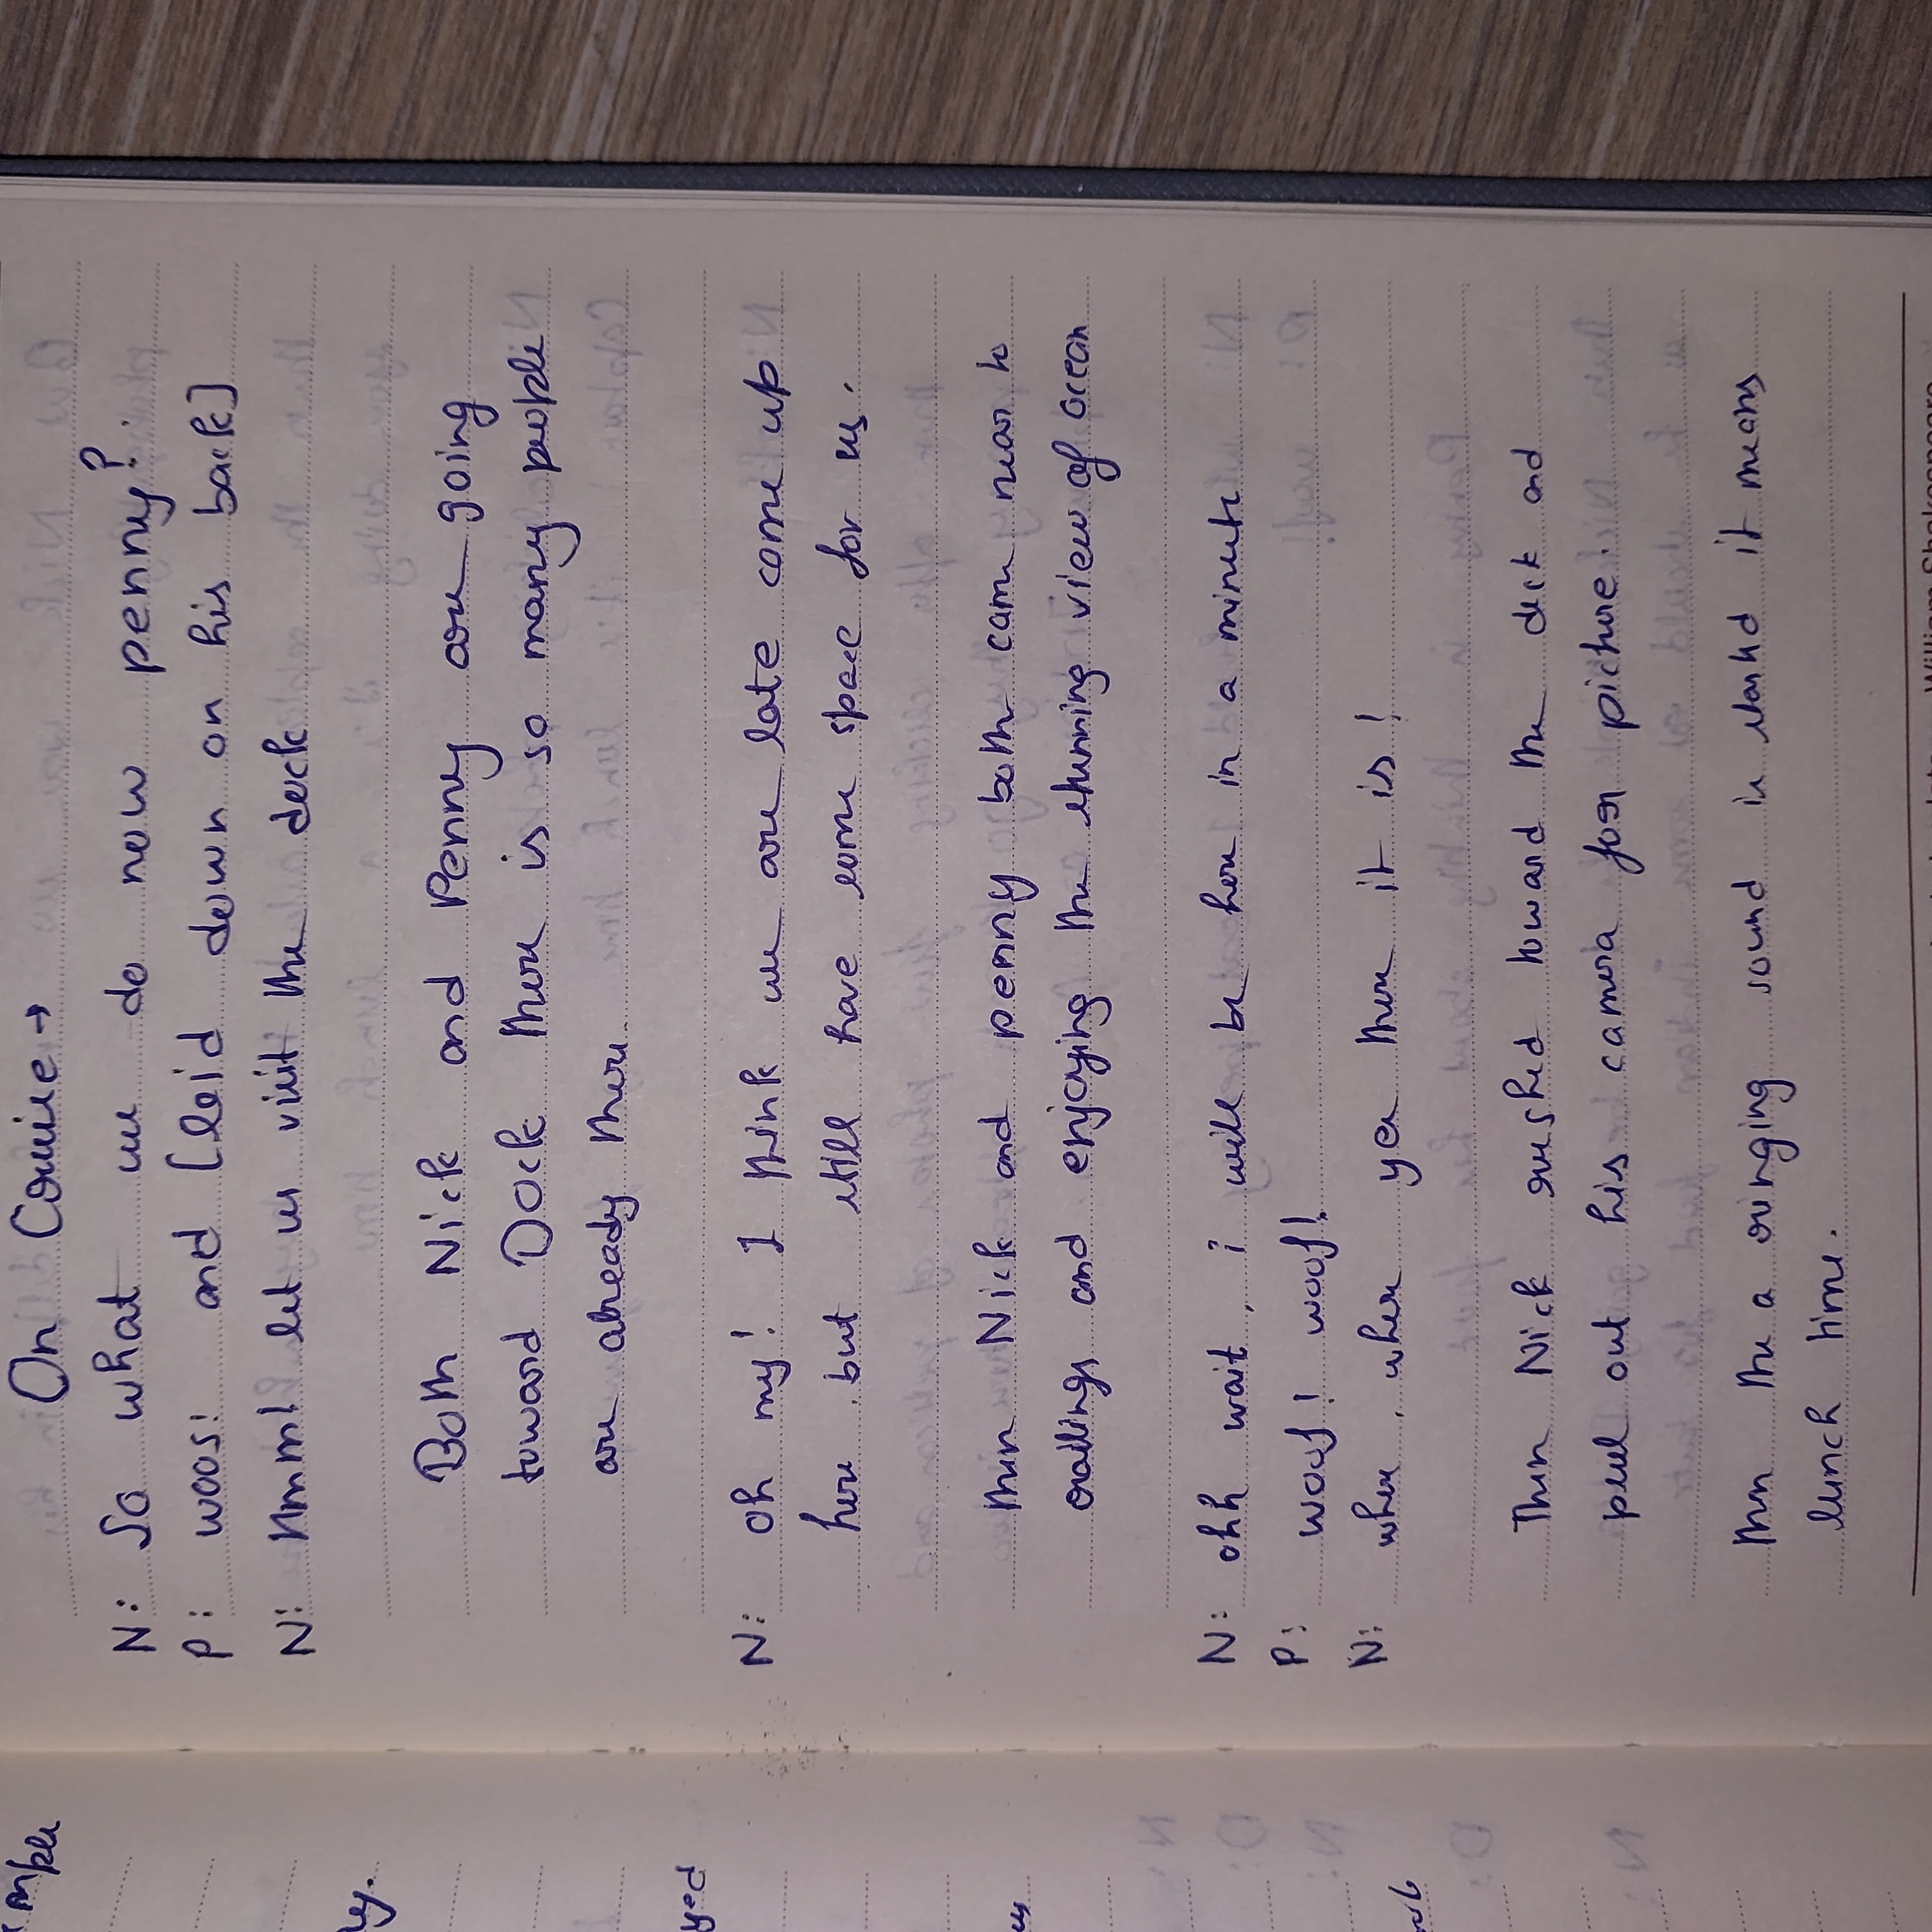 On Couise →
N: So what we do now penny?
P: woos! and [leid down on his back]
N: Hmm! let us visit the deck
Both Nick and Penny are going
toward Dock there is so many people
are already there.
N: oh my! I think we are late come up
here but still have some space for us.
then Nick and penny both came near to
railings and enjoying the stunning view of ocean
N: ohh wait, i will be here in a minute
P: woof! woof!
N: where, where yea there it is!
Then Nick rushed toward the deck and
pull out his camera for picture.
then the a ringing sound is started it means
lunch time.
William Shakespeare